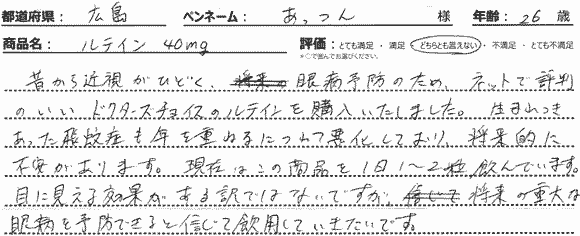 都道府県： 広島 ペンネーム： あっつん 様 年齢： 26 歳
商品名： ルテイン 40mg 評価：とても満足 ・ 満足 ・ どちらとも言えない ・ 不満足 ・ とても不満足
*○で囲んでお選びください。
昔から近視がひどく、眼病予防のため、ネットで評判
のいい ドクターズチョイスのルテインを購入いたしました。 生まれつき
あった飛蚊症も年を重ねるにつれて悪化しており、将来的に
不安があります。現在はこの商品を1日1〜2粒飲んでいます。
目に見える効果がある訳ではないですが、将来の重大な
眼病を予防できると信じて飲用していきたいです。